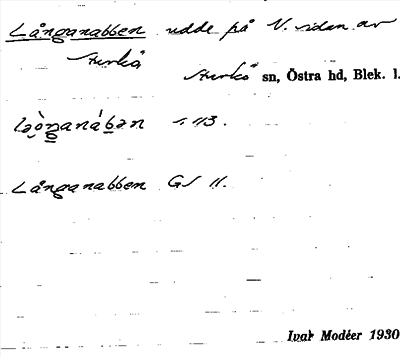 Långanabben udde på V. sidan av
Sturkö
Sturkö sn, Östra hd, Blek. l.
s. 113.
Långanabben GS 11.
Ivar Modéer 1930